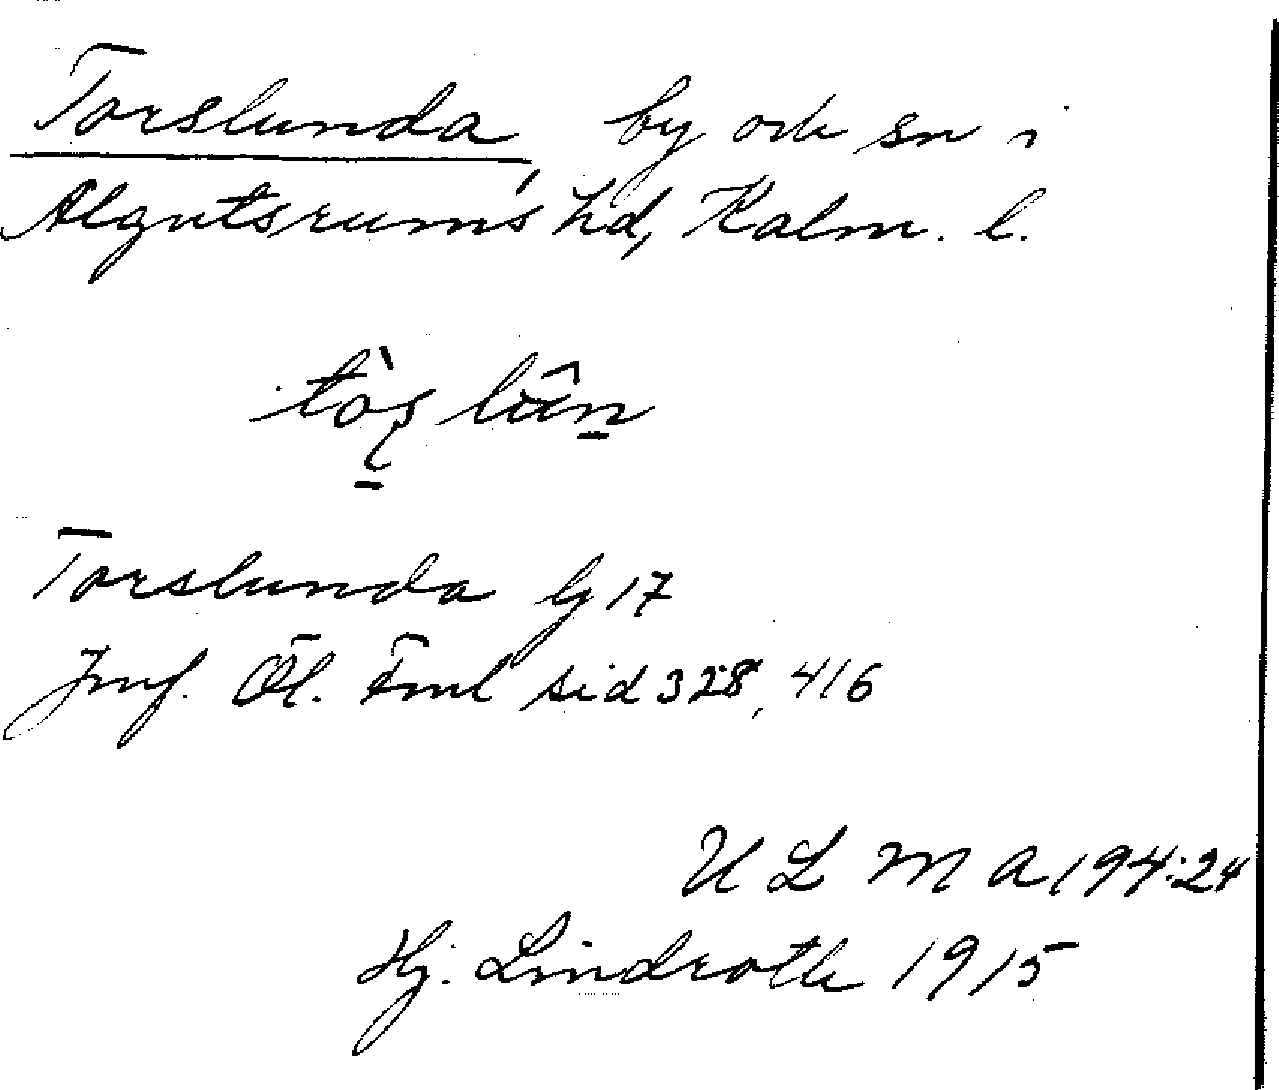 Torslunda, by och sn i
Algutsrums hd, Kalm. l.
Torslunda by 17
Jmf. Öl. Fml sid 328, 416
ULMA 194:24
Hj. Lindroth 1915